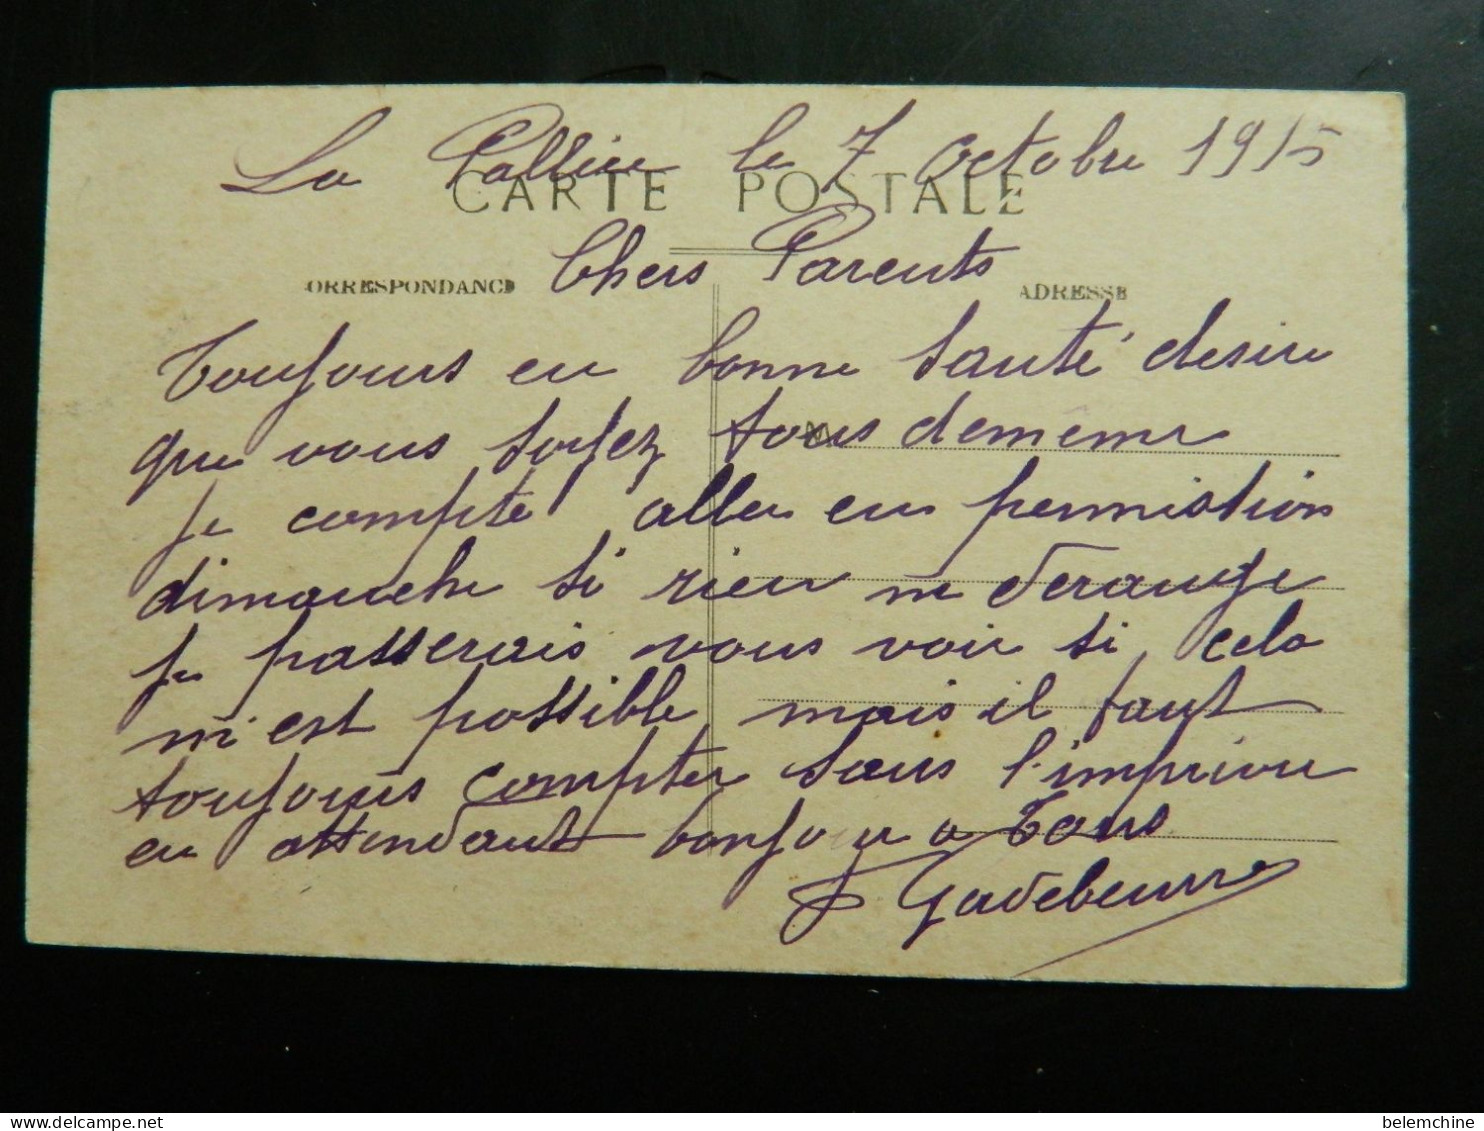 La Pallice le 7 octobre 1915
CARTE POSTALE
Chers Parents
CORRESPONDANCE
ADRESSE
Toujours en bonne santé desire
que vous soyez tous dememe
je compte aller en permission
dimanche si rien me derange
je passerais vous voir si cela
m'est possible mais il faut
toujours compter sans l'imprevu
en attendant bonjour a Tous
belemchine